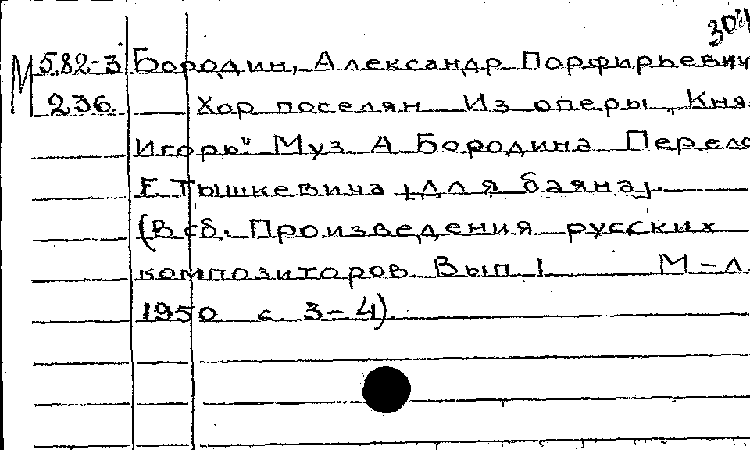 304
М 582-3 Бородин, Александр Порфирьевич
236 Хор поселян Из оперы „Кня
Игорь" Муз А Бородина Перело
Г. Тышкевича [для баяна].
(В сб. Произведения русских
композиторов Вып 1 М-Л
1950 с 3-4)